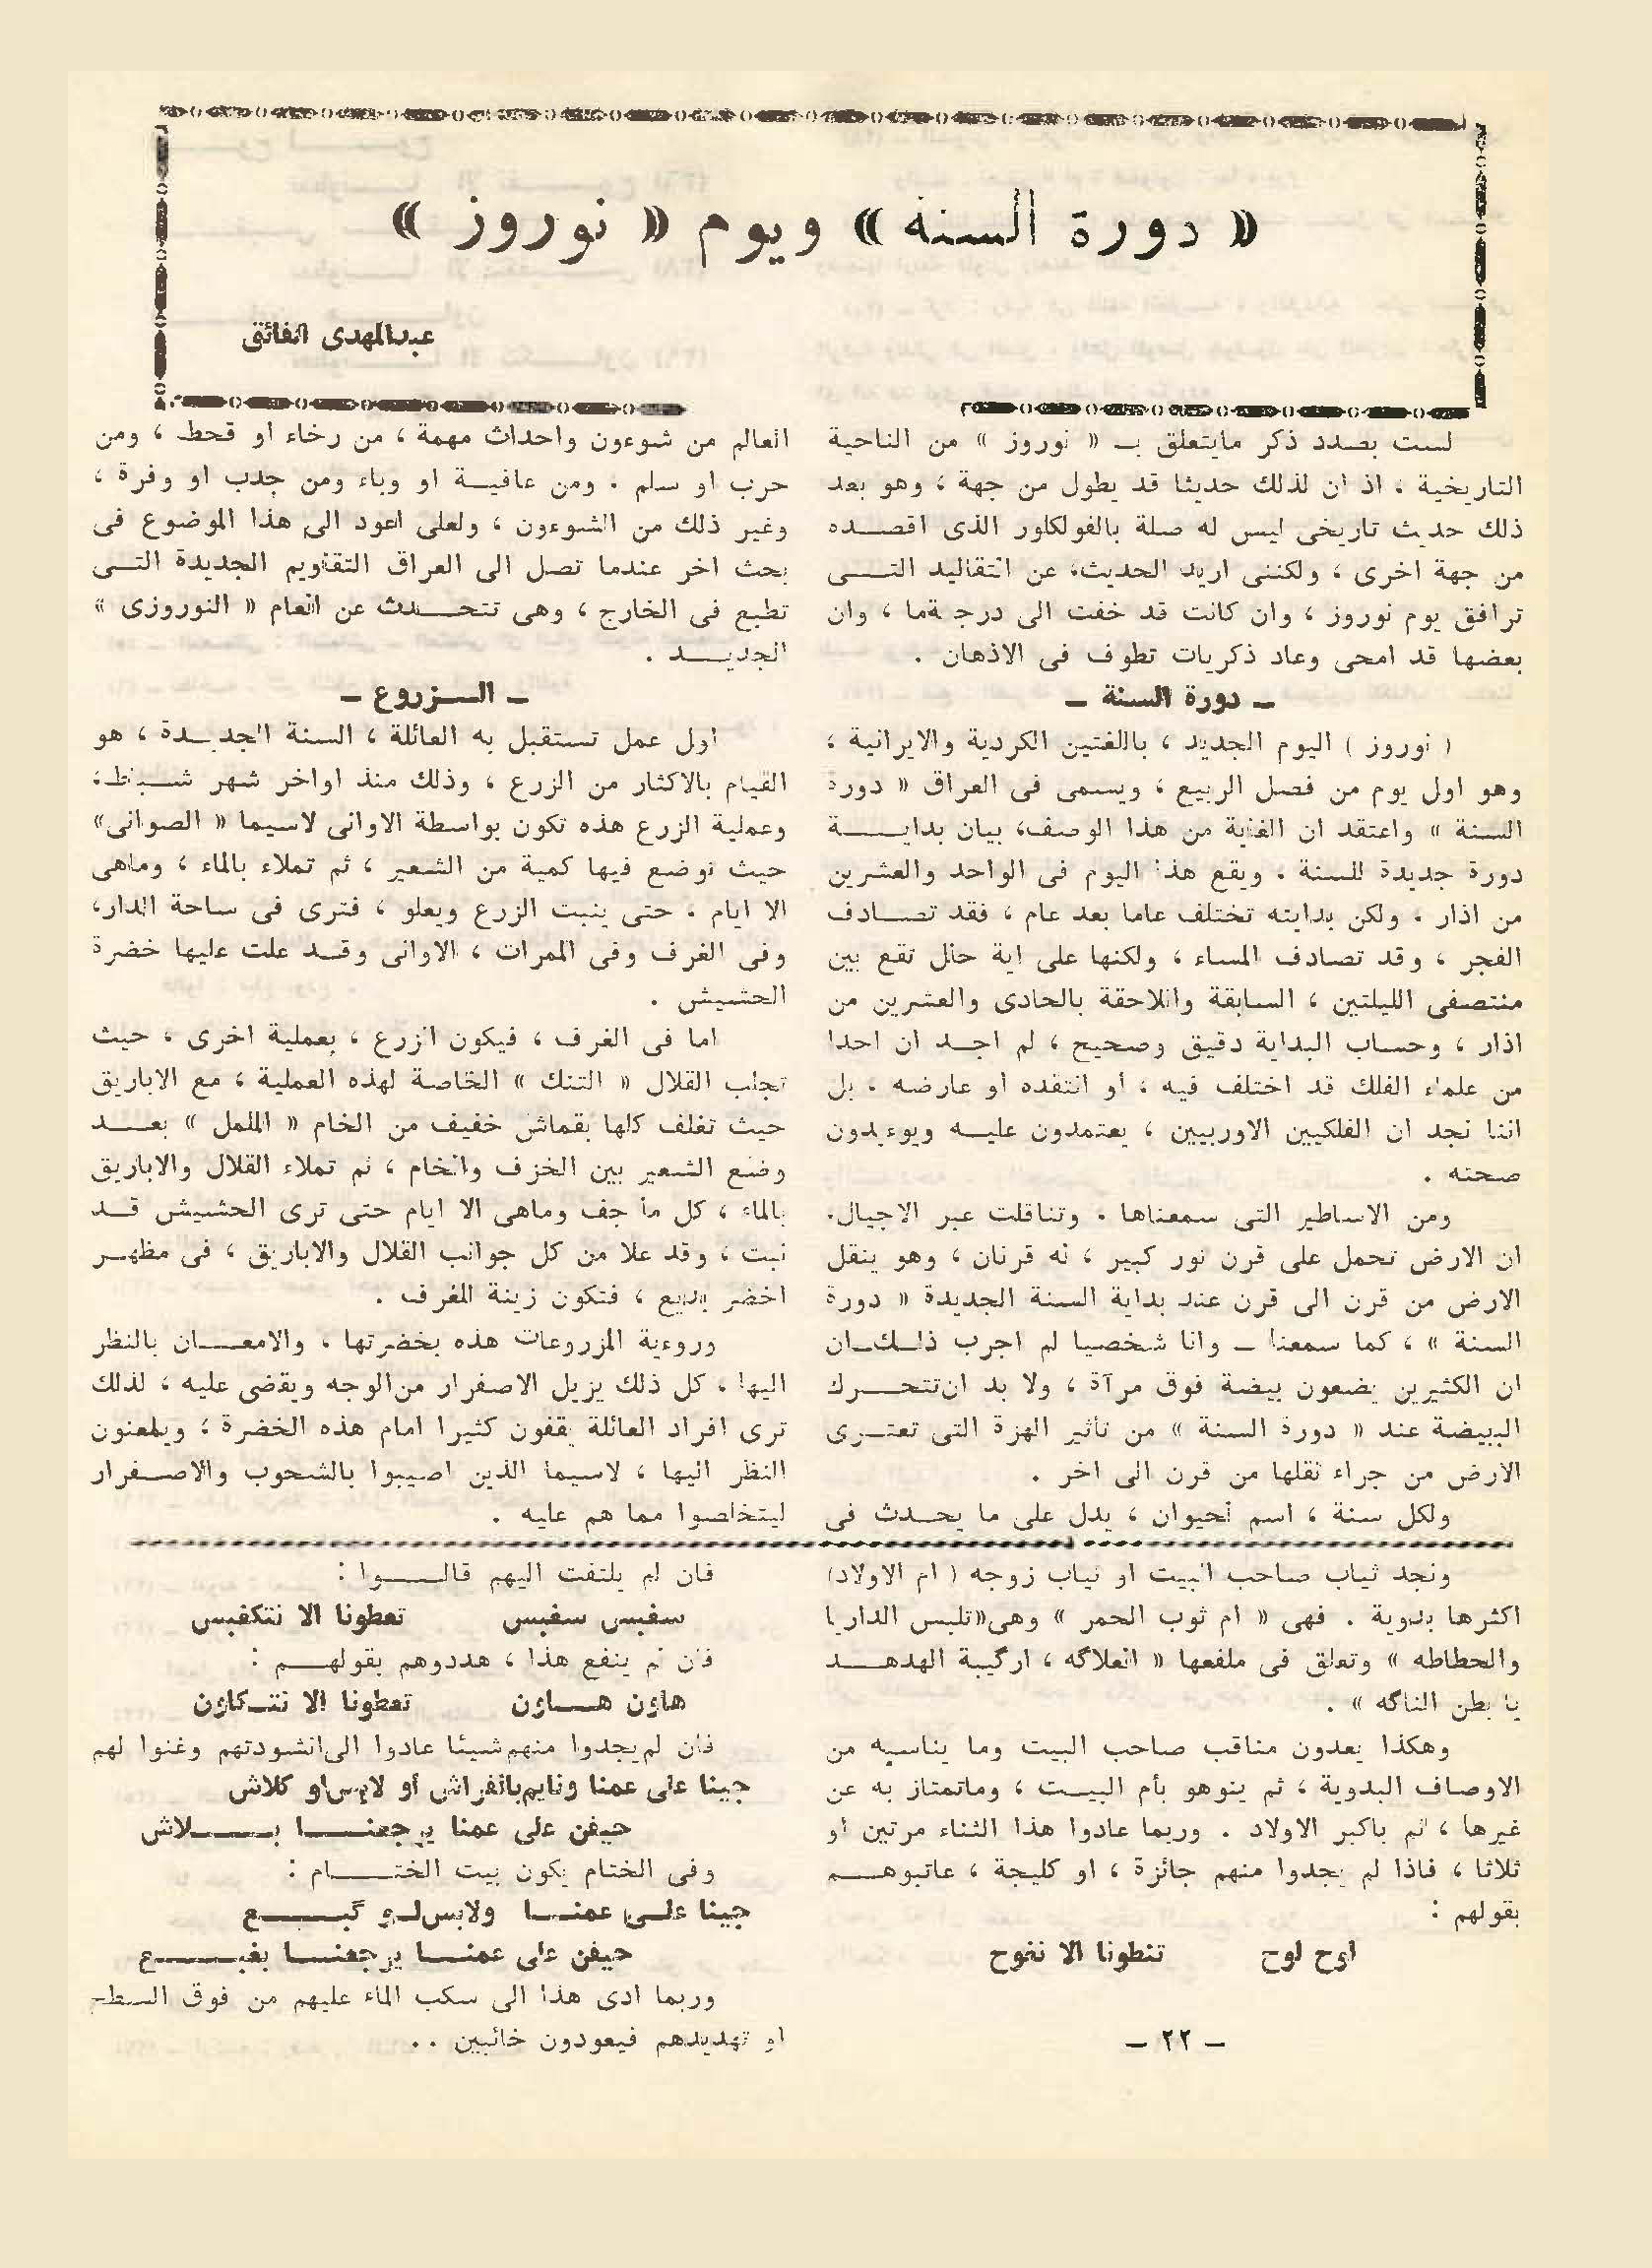 « دورة السنة » ويوم « نوروز »
عبدالمهدى الفائق
لست بصدد ذكر مايتعلق بـ « نوروز » من الناحية
التاريخية ، اذ ان لذلك حديثا قد يطول من جهة ، وهو بعد
ذلك حديث تاريخى ليس له صلة بالفولكلور الذى اقصده
من جهة اخرى ، ولكننى اريد الحديث، عن التقاليد التى
ترافق يوم نوروز ، وان كانت قد خفت الى درجةما ، وان
بعضها قد امحى وعاد ذكريات تطوف فى الاذهان .
ـ دورة السنة ـ
( نوروز ) اليوم الجديد ، باللغتين الكردية والايرانية ،
وهو اول يوم من فصل الربيع ، ويسمى فى العراق « دورة
السنة » واعتقد ان الغاية من هذا الوصف، بيان بداية
دورة جديدة للسنة ، ويقع هذا اليوم فى الواحد والعشرين
من اذار . ولكن بدايته تختلف عاما بعد عام ، فقد تصادف
الفجر ، وقد تصادف المساء ، ولكنها على اية حال تقع بين
منتصفى الليلتين ، السابقة واللاحقة بالحادى والعشرين من
اذار ، وحساب البداية دقيق وصحيح ، لم اجد ان احدا
من علماء الفلك قد اختلف فيه ، أو انتقده أو عارضه ، بل
اننا نجد ان الفلكيين الاوربيين ، يعتمدون عليه ويوءيدون
صحته .
ومن الاساطير التى سمعناها . وتناقلت عبر الاجيال.
ان الارض تحمل على قرن ثور كبير ، له قرنان ، وهو ينقل
الارض من قرن الى قرن عند بداية السنة الجديدة « دورة
السنة » ، كما سمعنا ـ وانا شخصيا لم اجرب ذلك ـ ان
ان الكثيرين يضعون بيضة فوق مرآة ، ولا بد ان تتحرك
البيضة عند « دورة السنة » من تأثير الهزة التى تعترى
الارض من جراء نقلها من قرن الى اخر .
ولكل سنة ، اسم لحيوان ، يدل على ما يحدث فى
العالم من شوءون واحداث مهمة ، من رخاء او قحط ، ومن
حرب او سلم . ومن عافية او وباء ومن جدب او وفرة ،
وغير ذلك من الشوءون ، ولعلى اعود الى هذا الموضوع فى
بحث اخر عندما تصل الى العراق التقاويم الجديدة التى
تطبع فى الخارج ، وهى تتحدث عن العام « النوروزى »
الجديد .
ـ الزروع ـ
اول عمل تستقبل به العائلة ، السنة الجديدة ، هو
القيام بالاكثار من الزرع ، وذلك منذ اواخر شهر شباط،
وعملية الزرع هذه تكون بواسطة الاوانى لاسيما « الصوانى»
حيث توضع فيها كمية من الشعير ، ثم تملاء بالماء ، وماهى
الا ايام . حتى ينبت الزرع ويعلو ، فترى فى ساحة الدار،
وفى الغرف وفى الممرات ، الاوانى وقد علت عليها خضرة
الحشيش .
اما فى الغرف ، فيكون الزرع ، بعملية اخرى ، حيث
تجلب القلال « التنك » الخاصة لهذه العملية ، مع الاباريق
حيث تغلف كلها بقماش خفيف من الخام « الململ » بعد
وضع الشعير بين الخزف والخام ، ثم تملاء القلال والاباريق
بالماء ، كل ما جف وماهى الا ايام حتى ترى الحشيش قد
نبت ، وقد علا من كل جوانب القلال والاباريق ، فى مظهر
اخضر بديع ، فتكون زينة للغرف .
وروءية المزروعات هذه بخضرتها ، والامعان بالنظر
اليها . كل ذلك يزيل الاصفرار من الوجه ويقضى عليه ، لذلك
ترى افراد العائلة يقفون كثيرا امام هذه الخضرة ؛ ويلمعنون
النظر اليها ، لاسيما الذين اصيبوا بالشحوب والاصفرار
ليتخلصوا مما هم عليه .
ونجد ثياب صاحب البيت او ثياب زوجه ( ام الاولاد)
اكثرها بدوية . فهى « ام ثوب الحمر » وهى«تلبس الداريا
والحطاطه » وتعلق فى ملفعها « العلاگه ، ارگيبة الهدهد
يا بطن الناگه » .
وهكذا يعدون مناقب صاحب البيت وما يناسبه من
الاوصاف البدوية ، ثم ينوهو بأم البيت ، وماتمتاز به عن
غيرها ، ثم باكبر الاولاد . وربما عادوا هذا الثناء مرتين او
ثلاثا ، فاذا لم يجدوا منهم جائزة ، او كليجة ، عاتبوهم
بقولهم :
اوح اوح تنطونا الا نخوح
فان لم يلتفت اليهم قالوا :
سفيس سفيس تعطونا الا نتكفيس
فان لم ينفع هذا ، هددوهم بقولهم :
هاون هاون تعطونا الا نتكاون
فان لم يجدوا منهم شيئا عادوا الى انشودتهم وغنوا لهم
جينا على عمنا ونايم بالفراش أو لابس او كلاش
حيفن على عمنا يرجعنا بلاش
وفى الختام يكون بيت الختام :
جينا على عمنا ولابس لو گبع
حيفن على عمنا يرجعنا بغبع
وربما ادى هذا الى سكب الماء عليهم من فوق السطح
او تهديدهم فيعودون خائبين . .
ـ ٢٢ ـ